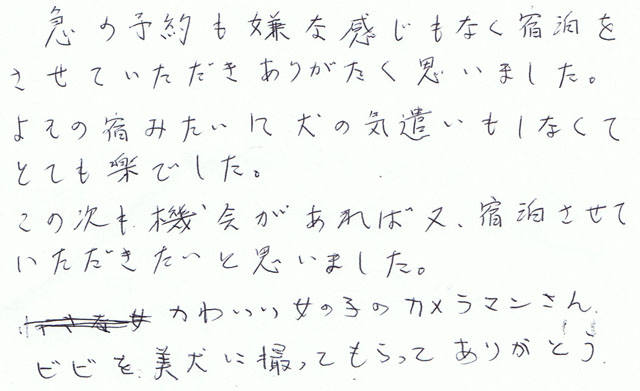 急の予約も嫌な感じもなく宿泊を
させていただきありがたく思いました。
よその宿みたいに犬の気遣いもしなくて
とても楽でした。
この次も機会があれば又、宿泊させて
いただきたいと思いました。
かわいい女の子のカメラマンさん、
ビビを美犬に撮ってもらってありがとう。